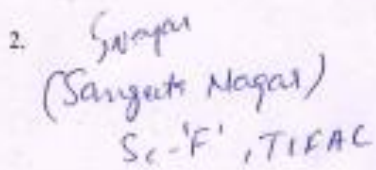 2.
(Sangeeta Nagar)
Sc-'F', TIFAC